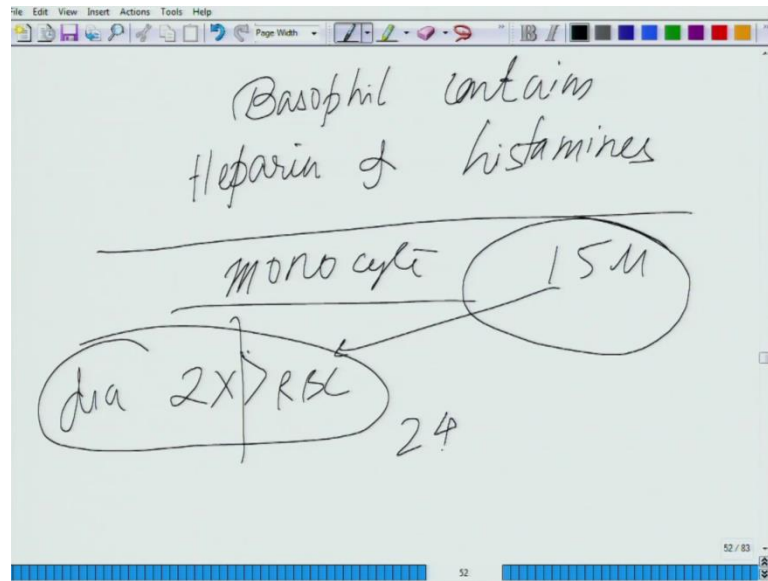 File Edit View Insert Actions Tools Help
Page Width
B I
Basophil contains
Heparin & histamines
monocyte 15 M
dia 2X > RBC
24
52 / 83
52